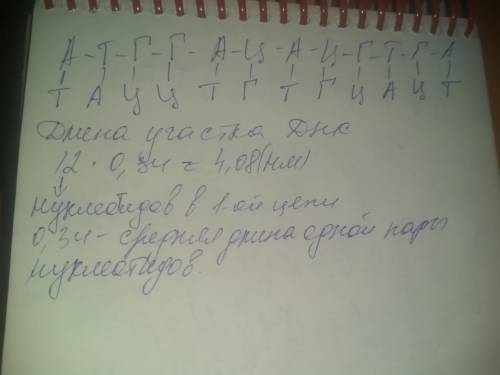 А - Т - Г - Г - А - Ц - А - Ц - Г - Т - Г - А
Т А Ц Ц Т Г Т Г Ц А Ц Т
Длина участка Днк
12 · 0,34 = 4,08 (нм)
Нуклеотидов в 1-ой цепи
0,34 - средняя длина одной пары
Нуклеотидов.